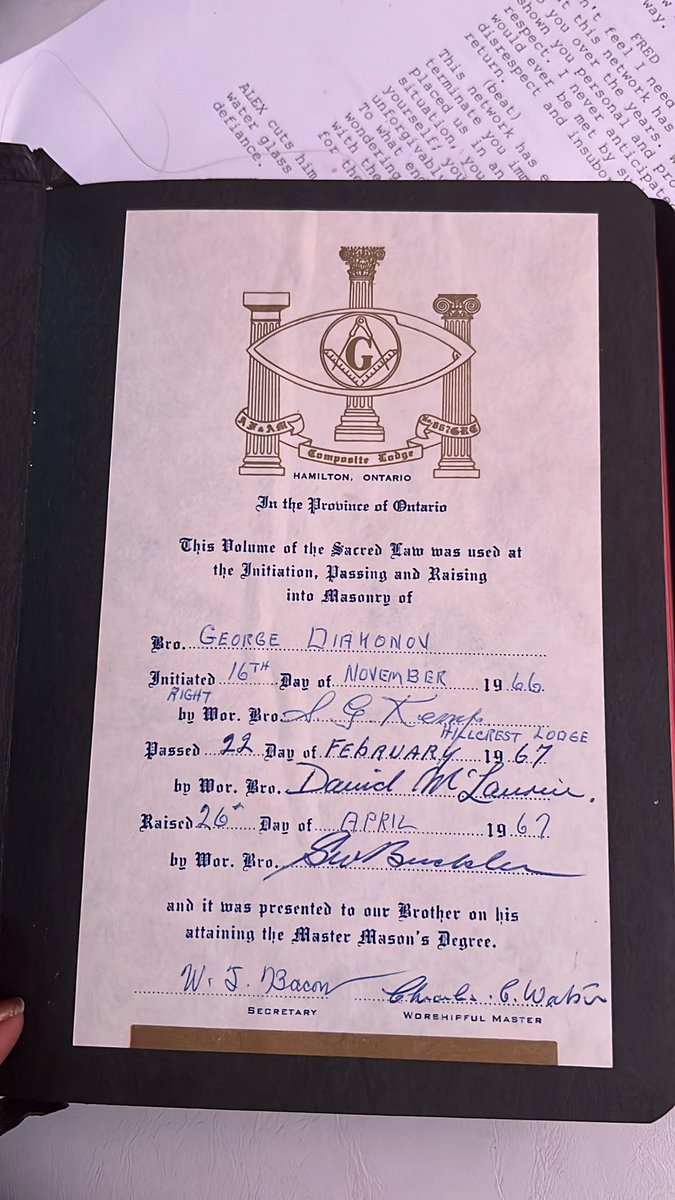 way.
FRED
n't feel I need
t this network has
you over the years. W
shown you personal and pro
respect. I never anticipat
would ever be met by s
disrespect and insubo
return.
(beat)
This network has e
terminate you imm
placed us in an
situation, you
yourself;
unforgivabl
wondering
To what en
with tha
for the
ALEX cuts him
water glass
defiance.
G
AF & AM
Composite Lodge
No. 667 GRC
HAMILTON, ONTARIO
In the Province of Ontario
This Volume of the Sacred Law was used at
the Initiation, Passing and Raising
into Masonry of
Bro. GEORGE DIAKONOV
Initiated 16TH Day of NOVEMBER 1966
RIGHT
by Wor. Bro. S G Kemp
HILLCREST LODGE
Passed 22 Day of FEBRUARY 1967
by Wor. Bro. David McLaurin.
Raised 26th Day of APRIL 1967
by Wor. Bro. Buckler
and it was presented to our Brother on his
attaining the Master Mason's Degree.
W. J. Bacon Charles C. Watson
SECRETARY WORSHIPFUL MASTER